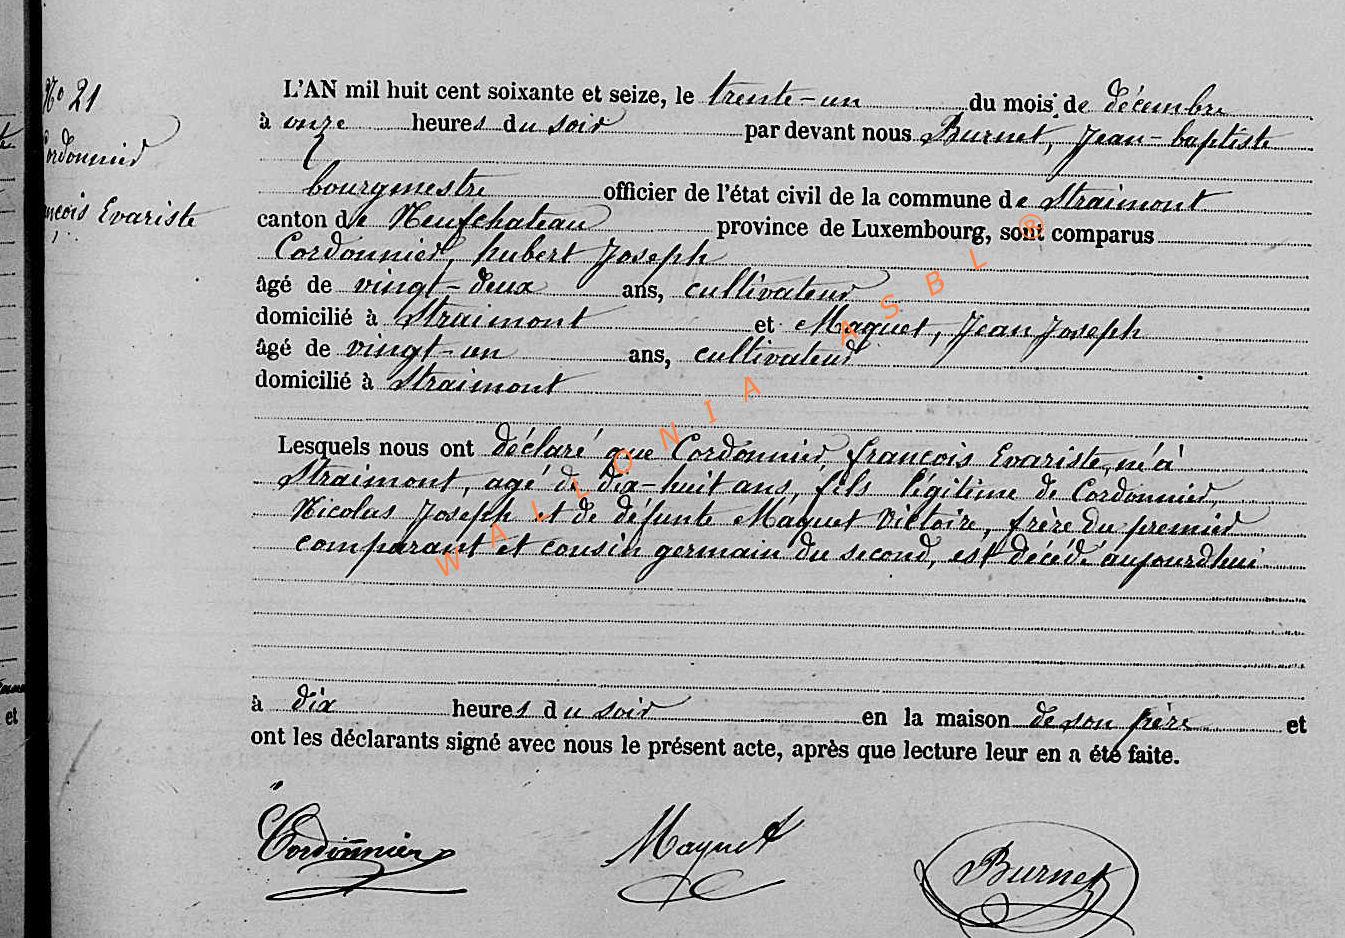 No 21
Cordonnier
François Evariste
L'AN mil huit cent soixante et seize, le trente-un du mois de décembre
à onze heures du soir par devant nous Burnet, Jean-baptiste
bourgmestre officier de l'état civil de la commune de Straimont
canton de Neufchateau province de Luxembourg, sont comparus
Cordonnier, hubert Joseph
âgé de vingt-deux ans, cultivateur
domicilié à Straimont et Maquet, Jean Joseph
âgé de vingt-un ans, cultivateur
domicilié à Straimont
Lesquels nous ont déclaré que Cordonnier, françois Evariste, né à
Straimont, agé de dix-huit ans, fils légitime de Cordonnier,
Nicolas Joseph et de défunte Maquet Victoire, frère du premier
comparant et cousin germain du second, est décédé aujourdhui
à dix heures du soir en la maison de son père et
ont les déclarants signé avec nous le présent acte, après que lecture leur en a été faite.
Cordonnier Maquet Burnet
WALLONIA ASBL ®
et